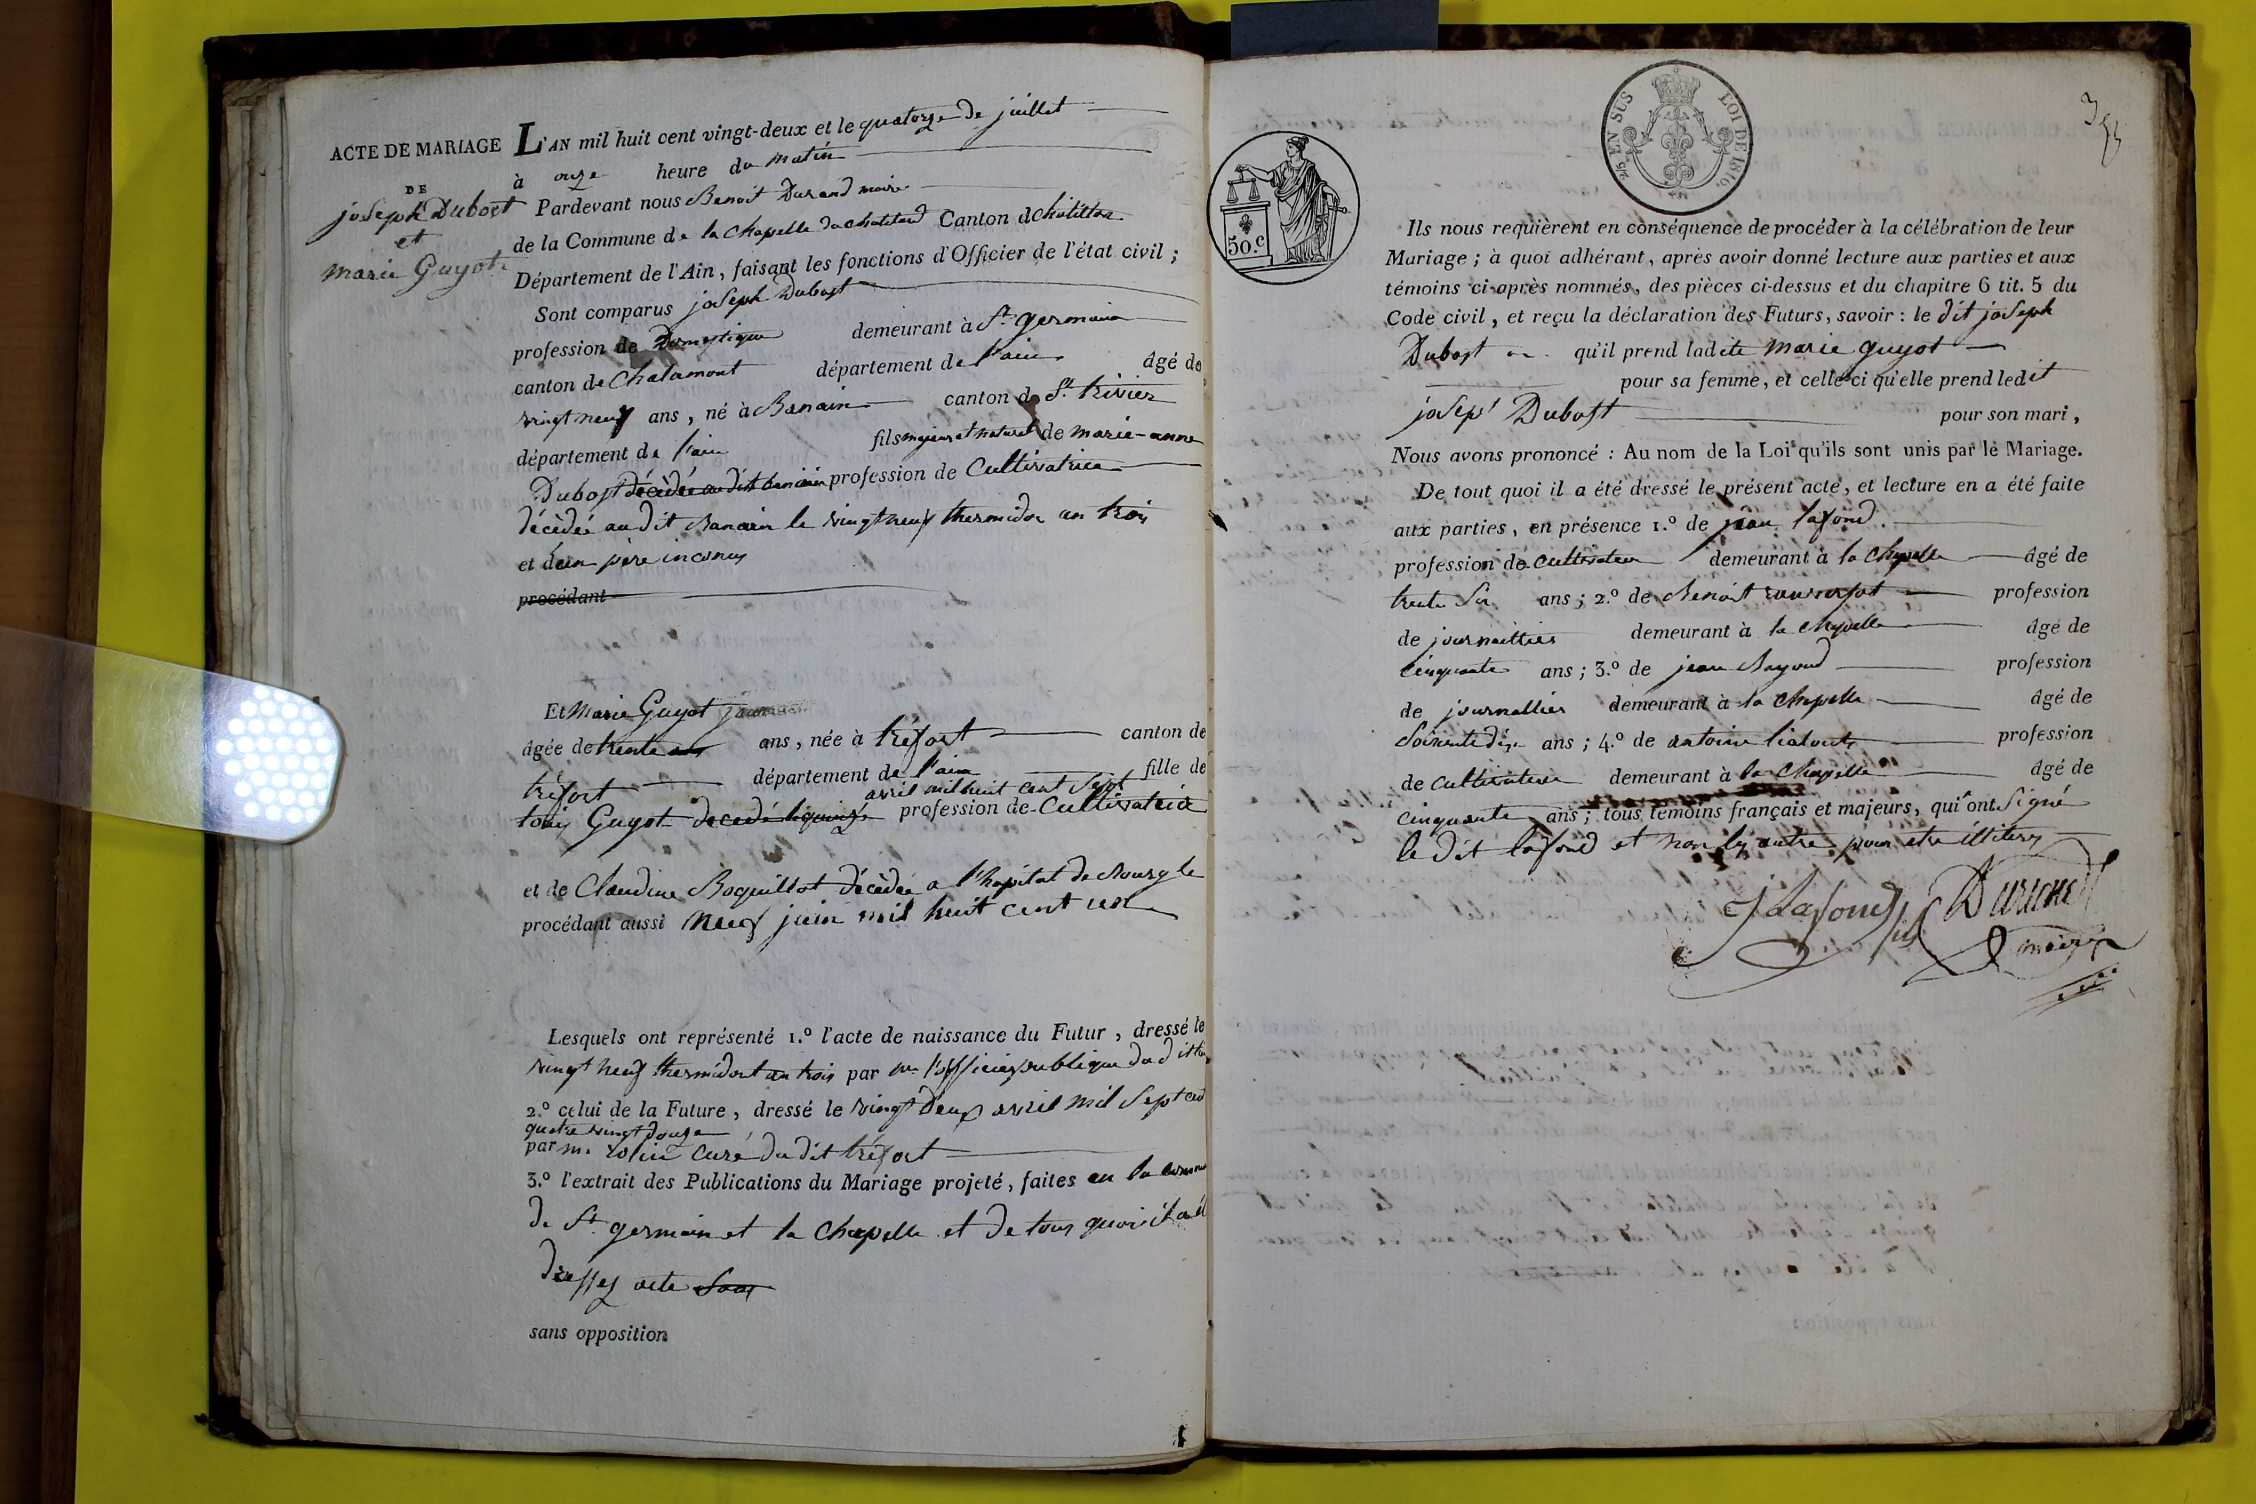 ACTE DE MARIAGE
DE
joseph Dubost
et
marie Guyot
L'AN mil huit cent vingt-deux et le quatorze de juillet
à onze heure du matin
Pardevant nous Benoit Durand maire
de la Commune de la Chapelle du chatelard Canton de chatillon
Département de l'Ain, faisant les fonctions d'Officier de l'état civil ;
Sont comparus joseph Dubost
profession de Domestique demeurant à St. germain
canton de Chalamont département de l'ain âgé de
vingt neuf ans, né à Banain canton de St. trivier
département de l'ain fils majeur et naturel de marie-anne
Dubost décédée au dit banain profession de Cultivatrice
décédée au dit Banain le vingt neuf thermidor an trois
et d'un père inconus
procédant
Et Marie Guyot
âgée de trente ans ans, née à tréfort canton de
tréfort département de l'ain fille de
avril mil huit cent sept
louis Guyot decedé le quinze profession de Cultivatrice
et de Claudine Boquillot décédée a l'hopital de Bourg le
procédant aussi neuf juin mil huit cent un
Lesquels ont représenté 1.º l'acte de naissance du Futur, dressé le
vingt neuf thermidort an trois par l'officier publique du dit
2.º celui de la Future, dressé le vingt deux avril mil sept cent
quatre vingt douze
par m. curé du dit tréfort
3.º l'extrait des Publications du Mariage projeté, faites en la
de St. germain et la Chapelle et de tous quoi il a été
dressez acte sans
sans opposition
2/5 EN SUS LOI DE 1816.
50.c
Ils nous requièrent en conséquence de procéder à la célébration de leur
Mariage ; à quoi adhérant, après avoir donné lecture aux parties et aux
témoins ci-après nommés, des pièces ci-dessus et du chapitre 6 tit. 5 du
Code civil, et reçu la déclaration des Futurs, savoir : le dit joseph
Dubost qu'il prend ladite Marie guyot
pour sa femme, et celle-ci qu'elle prend ledit
joseph Dubost pour son mari,
Nous avons prononcé : Au nom de la Loi qu'ils sont unis par le Mariage.
De tout quoi il a été dressé le présent acte, et lecture en a été faite
aux parties, en présence 1.º de jean lafond
profession de cultivateur demeurant à la Chapelle âgé de
trente Six ans ; 2.º de Benoit profession
de journaillier demeurant à la chapelle âgé de
cinquante ans ; 3.º de jean profession
de journallier demeurant à la chapelle âgé de
Soixente dix ans ; 4.º de antoine profession
de cultivateur demeurant à la Chapelle âgé de
cinquante ans ; tous témoins français et majeurs, qui ont Signé
le dit lafond et non les autres pour etre illiterez
J Lafond Durand
maire